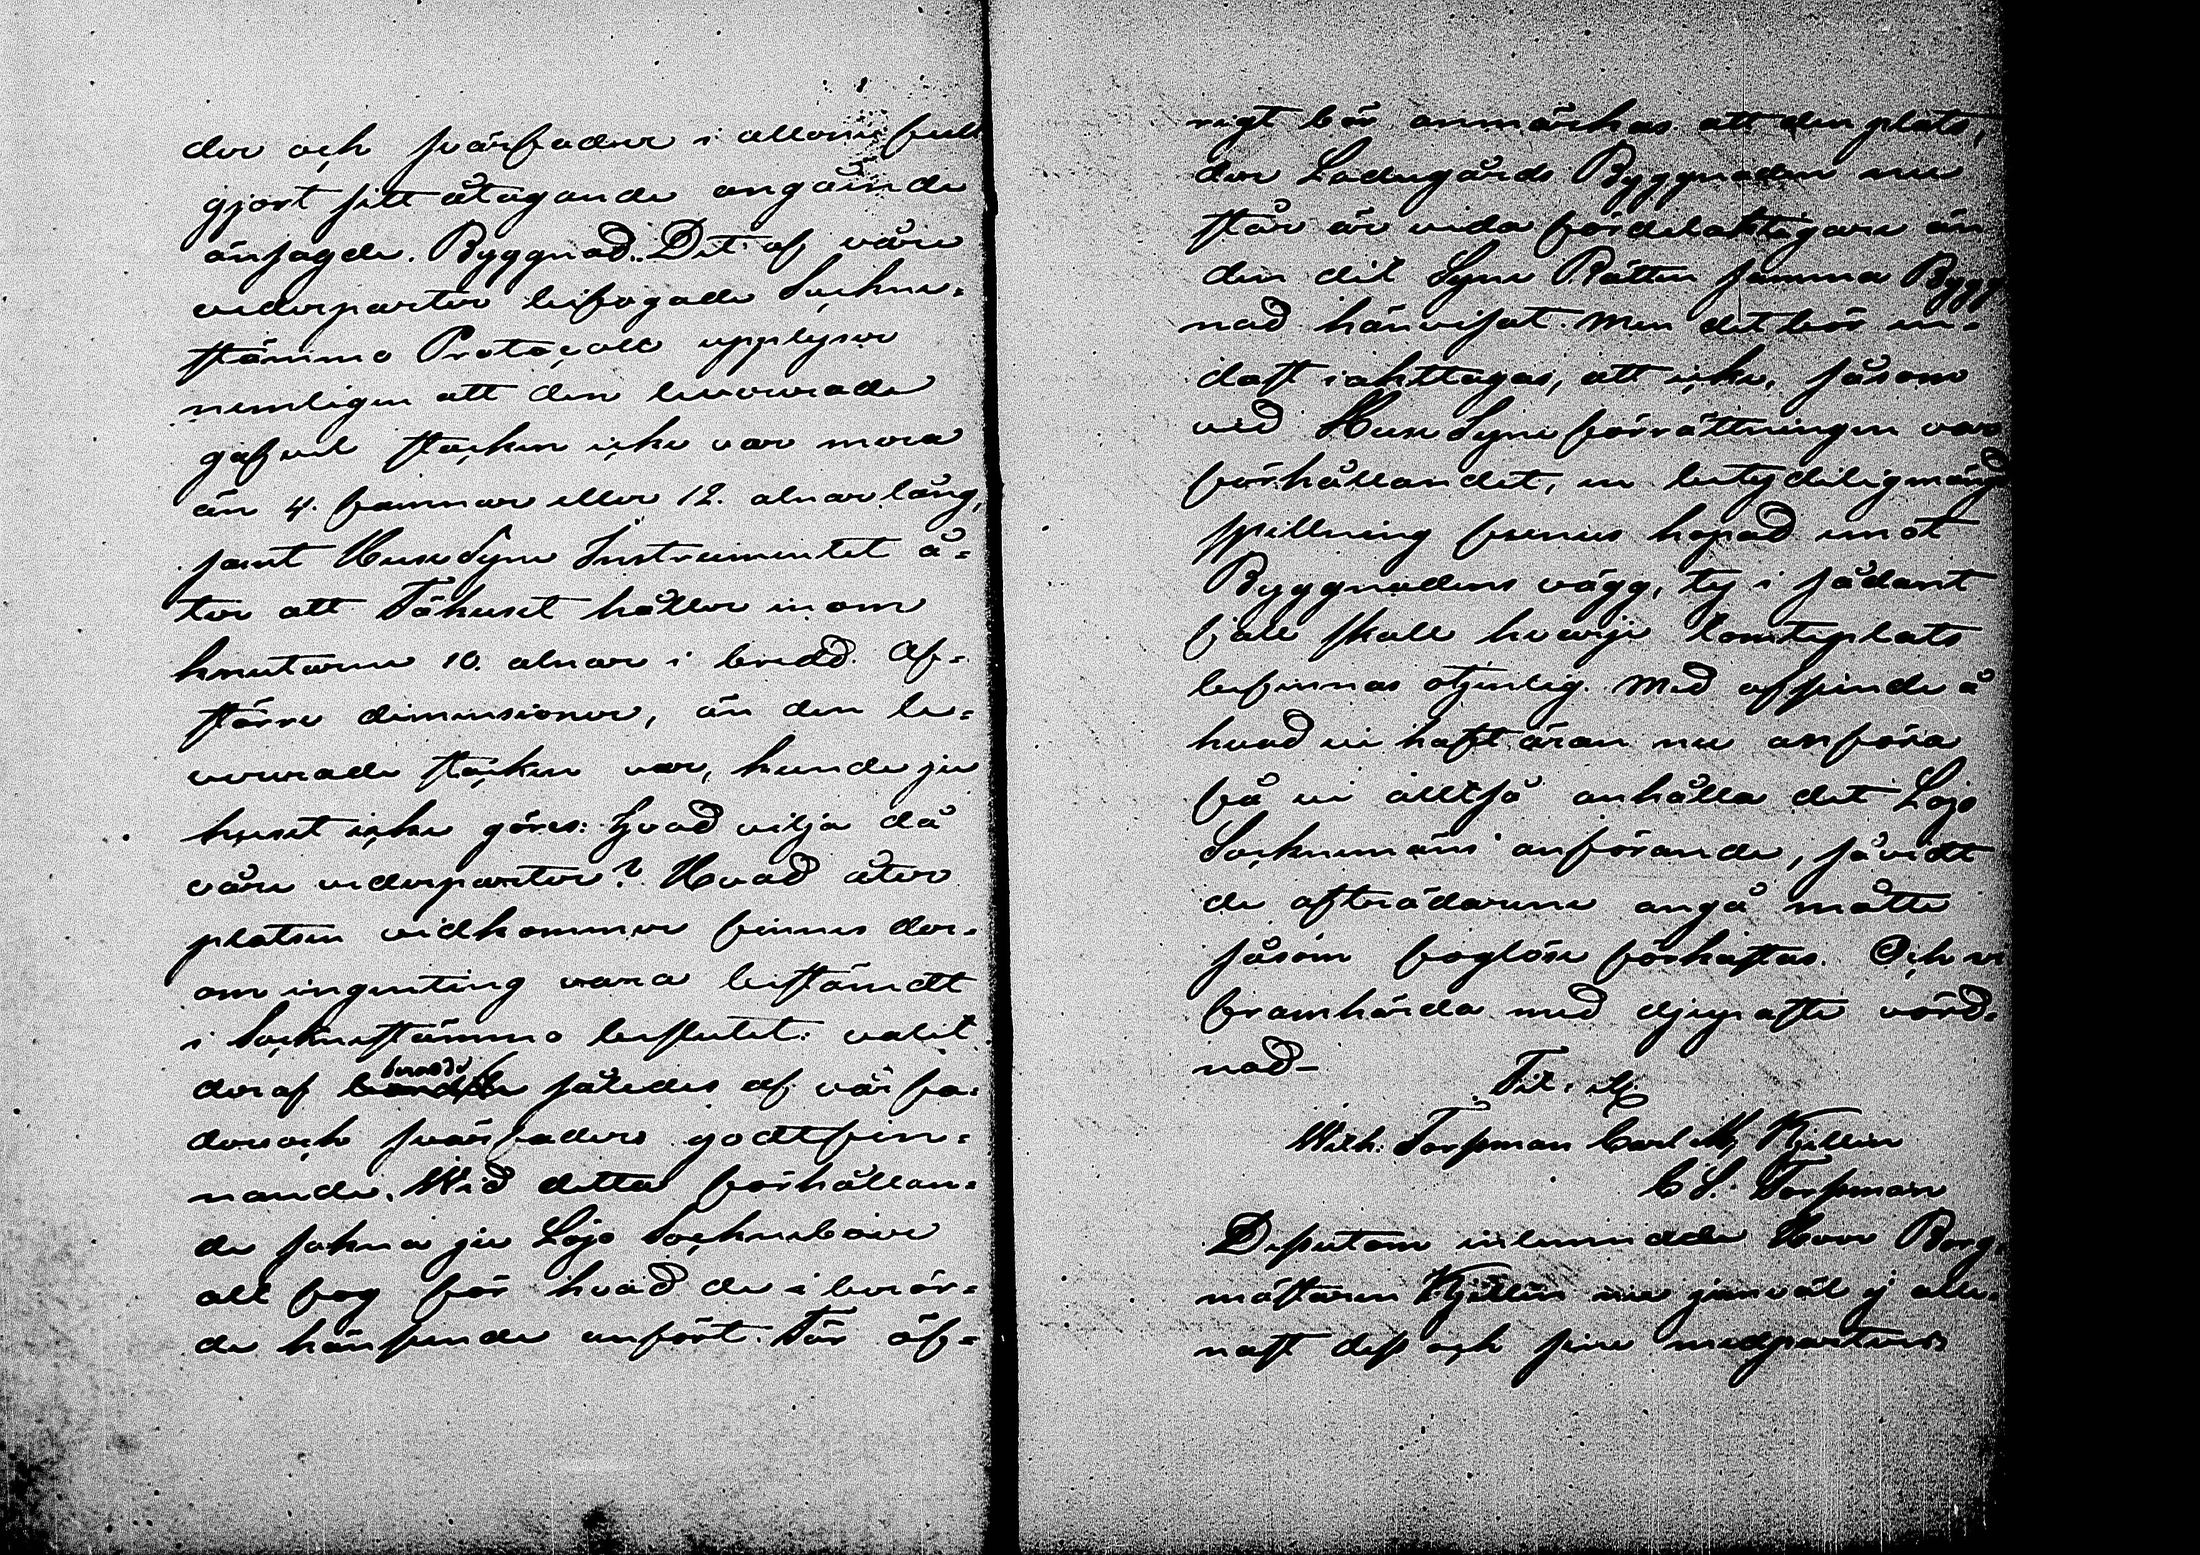 der och svärfader i allone full
gjort sitt åtagande angående
änsagde. Byggnad. Det af våre
vederparter bifogade Sockne-
stämmo Protocoll upplyser
nemligen att den
gafvel stocken icke var mera
än 4. famnar eller 12. alnar lång,
samt HuseSyne Instrumentet å-
ter att Fähuset håller inom
knutarne 10. alnar i bredd. Af
större dimensioner, än den le-
vererade stocken var, kunde ju
huset icke göras: hvad vilja då
våre vederparter? Hvad åter
platsen vidkommer finnes der-
om ingenting vara bestämdt
i Socknestämmo beslutet: valet
deraf berodde således af vår fa-
der och svärfaders godtfin-
nande. Wid detta förhållan-
de sakna ju Lojo Sockneboer
all fog för hvad de i berör-
de hänseende anfört. För öf-
rigt bör anmärkas att den plats,
der Ladugårds Byggnaden nu
står är vida fördelaktigare än
den dit Syne Rätten samma Bygg
nad hänvisat. Men det bör en-
dast iakttagas, att icke, såsom
vid HuseSyne förrättningen var
förhållandet, en betydelig mängd
spillning finnes hopad emot
Byggnadens vägg, ty i sådant
fall skall hvarje tomteplats
befinnas otjenlig. Med afseende å
hvad vi haft äran nu anföra
få vi alltså anhålla det Lojo
Socknemäns anförande, såvidt
de afträdarene angå måtte
såsom foglöse förkastas. Och vi
framhärda med djupaste vörd-
nad-
Tit. &
Wilh: Forssman Carl M Kjellin
C S. Forssman
Dessutom inlemnadde Herr Borg-
mästaren Kjellin nu jemväl ej alle-
nast dess och sine medparters